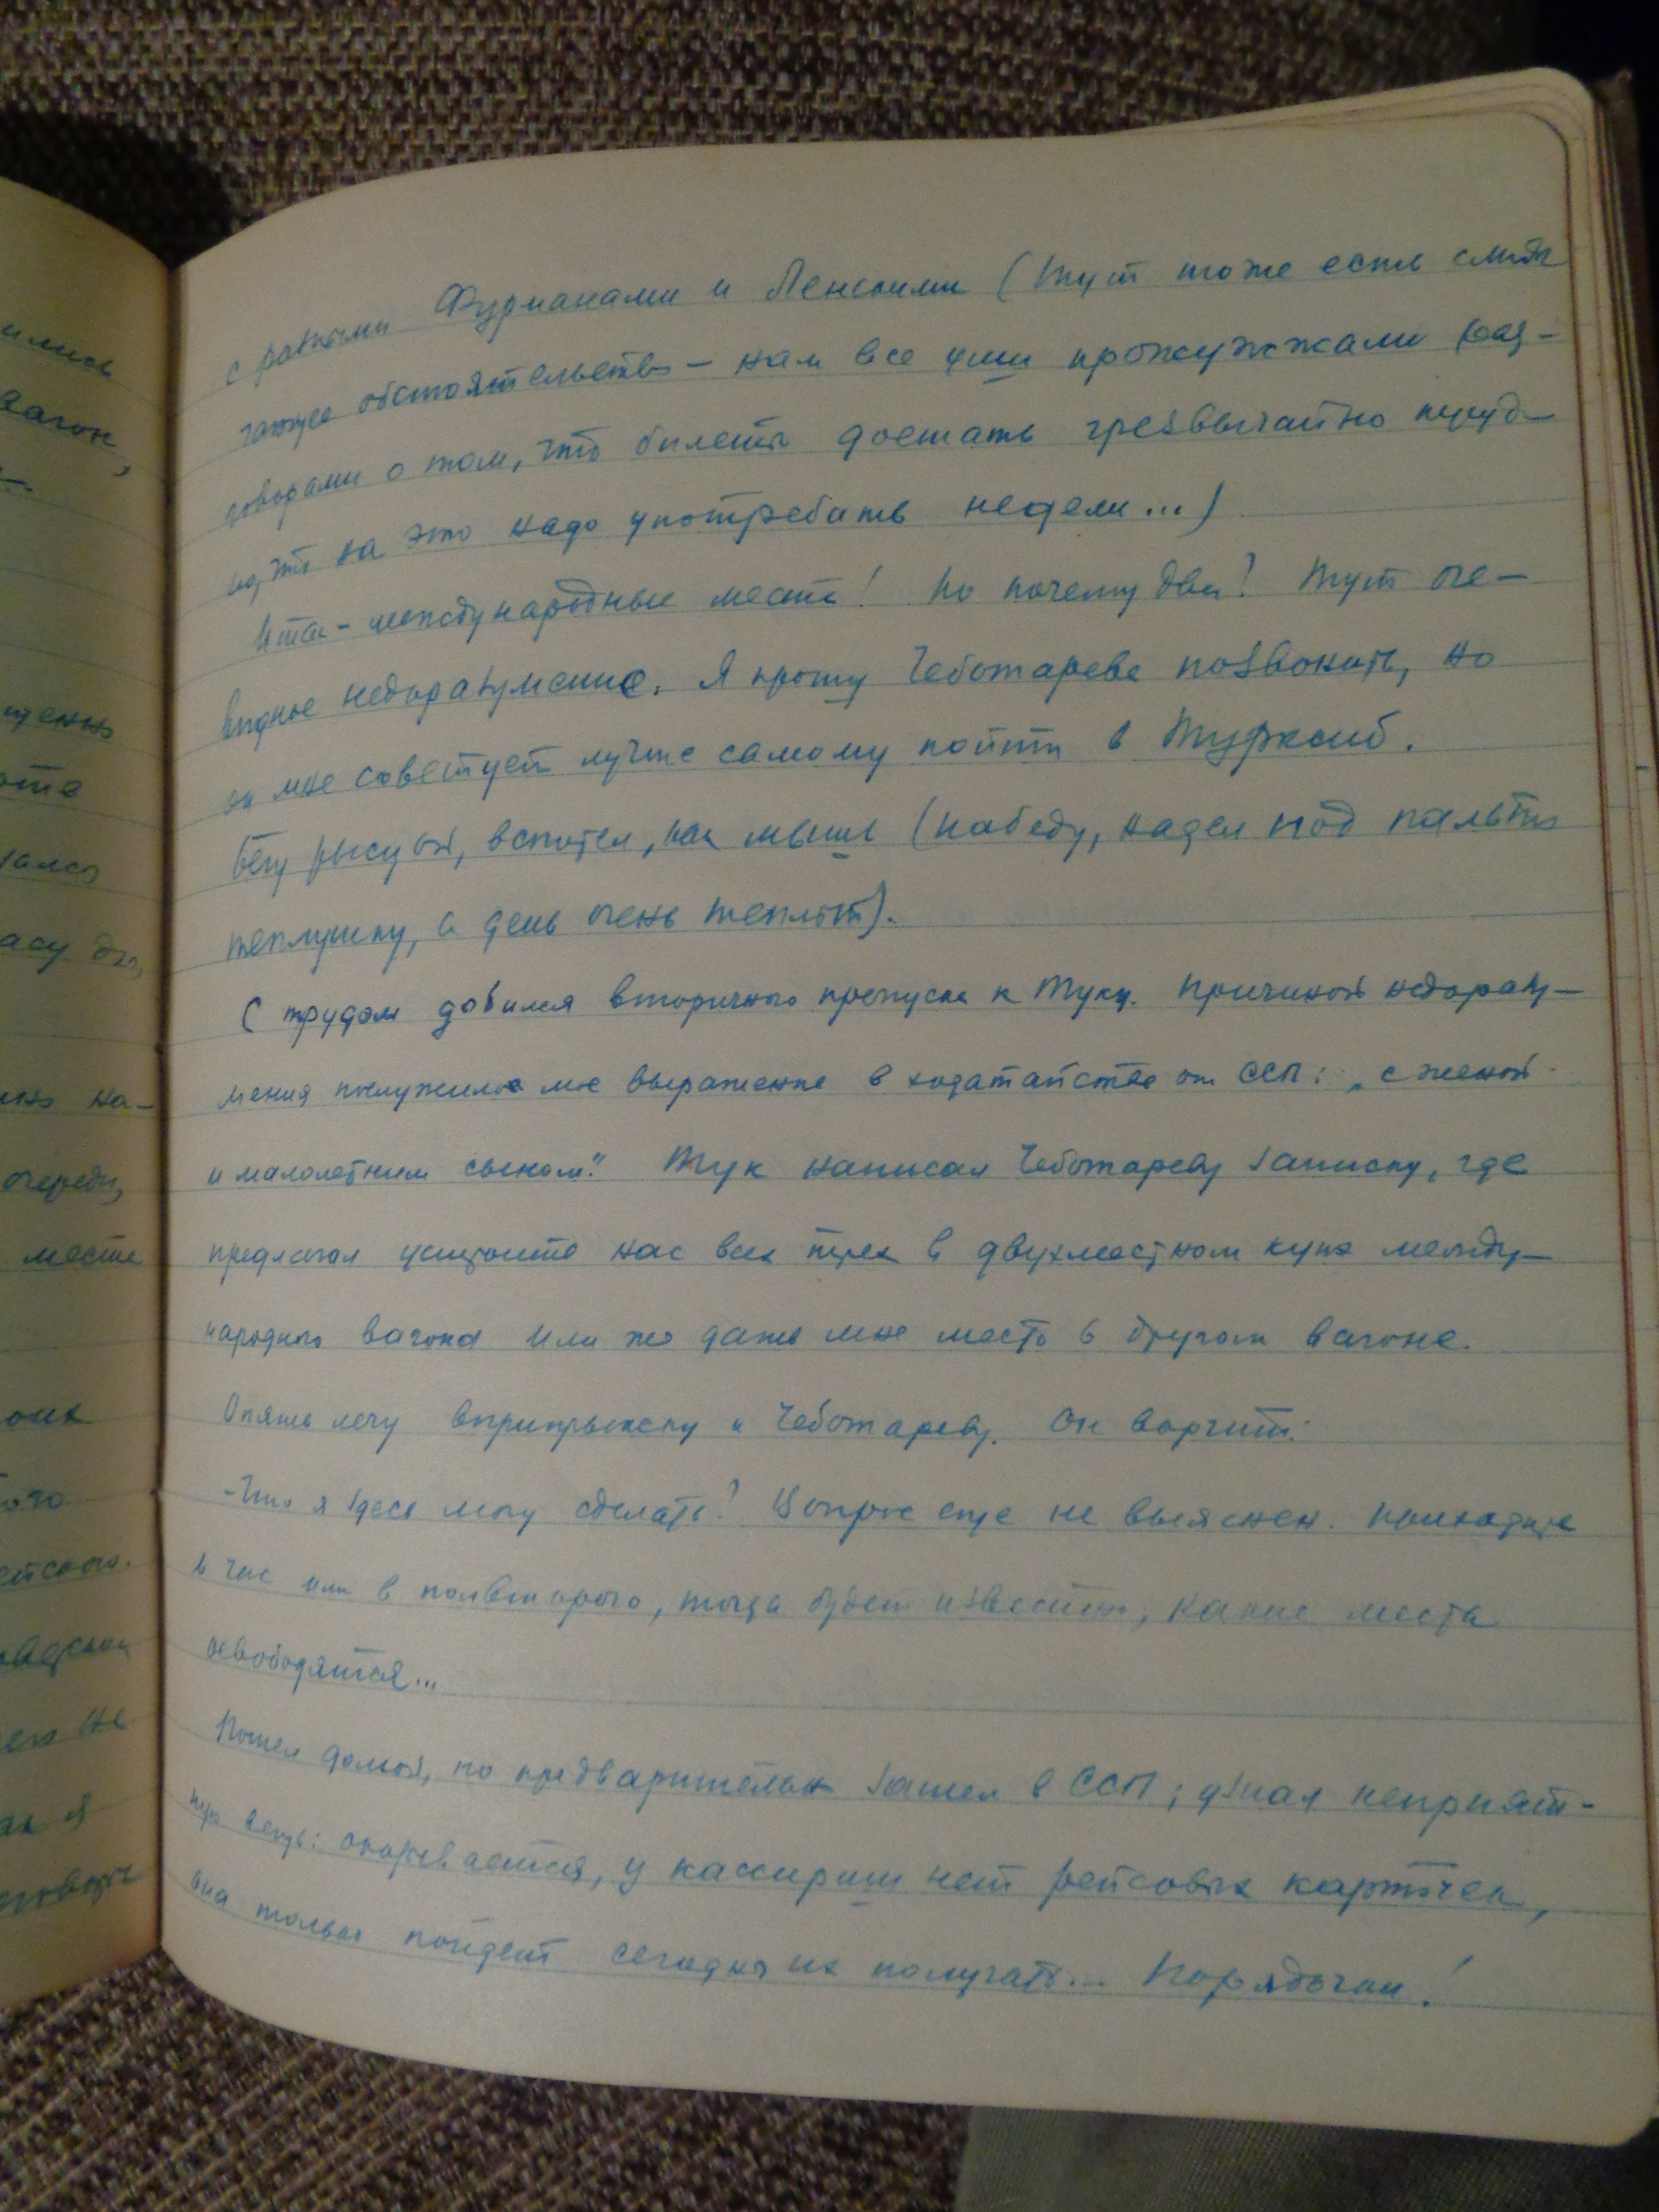 ились
вагон,
с разными Фурманами и Ленскими (тут тоже есть смяг-
чающее обстоятельство - нам все уши прожужжали раз-
говорами о том, что билеты достать чрезвычайно труд-
но, что на это надо употребить недели...)
Итак - международные места! Но почему два? Тут оче-
видное недоразумение. Я прошу Чеботарева позвонить, но
он мне советует лучше самому пойти в Турксиб.
Бегу рысцой, вспотел, как мышь (на беду, надел под пальто
теплушку, а день очень теплый).
С трудом добился вторичного пропуска к Туку. Причиной недоразу-
мения послужило мое выражение в ходатайстве от ССП: „с женой
и малолетним сыном". Тук написал Чеботареву записку, где
предлагал устроить нас всех трех в двухместном купэ между-
народного вагона или же дать мне место в другом вагоне.
Опять лечу вприпрыжку к Чеботареву. Он ворчит:
- Что я здесь могу сделать? Вопрос еще не выяснен. Приходите
в час или в полвторого, тогда будет известно, какие места
освободятся...
Пошел домой, но предварительно зашел в ССП; узнал неприят-
ную вещь: оказывается, у кассирши нет рейсовых карточек,
она только пойдет сегодня их получать... Порядочки!
на-
очереди,
места
его не